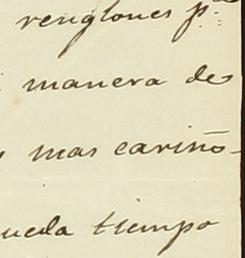 renglones pª
manera de
mas cariño-
ueda tiempo